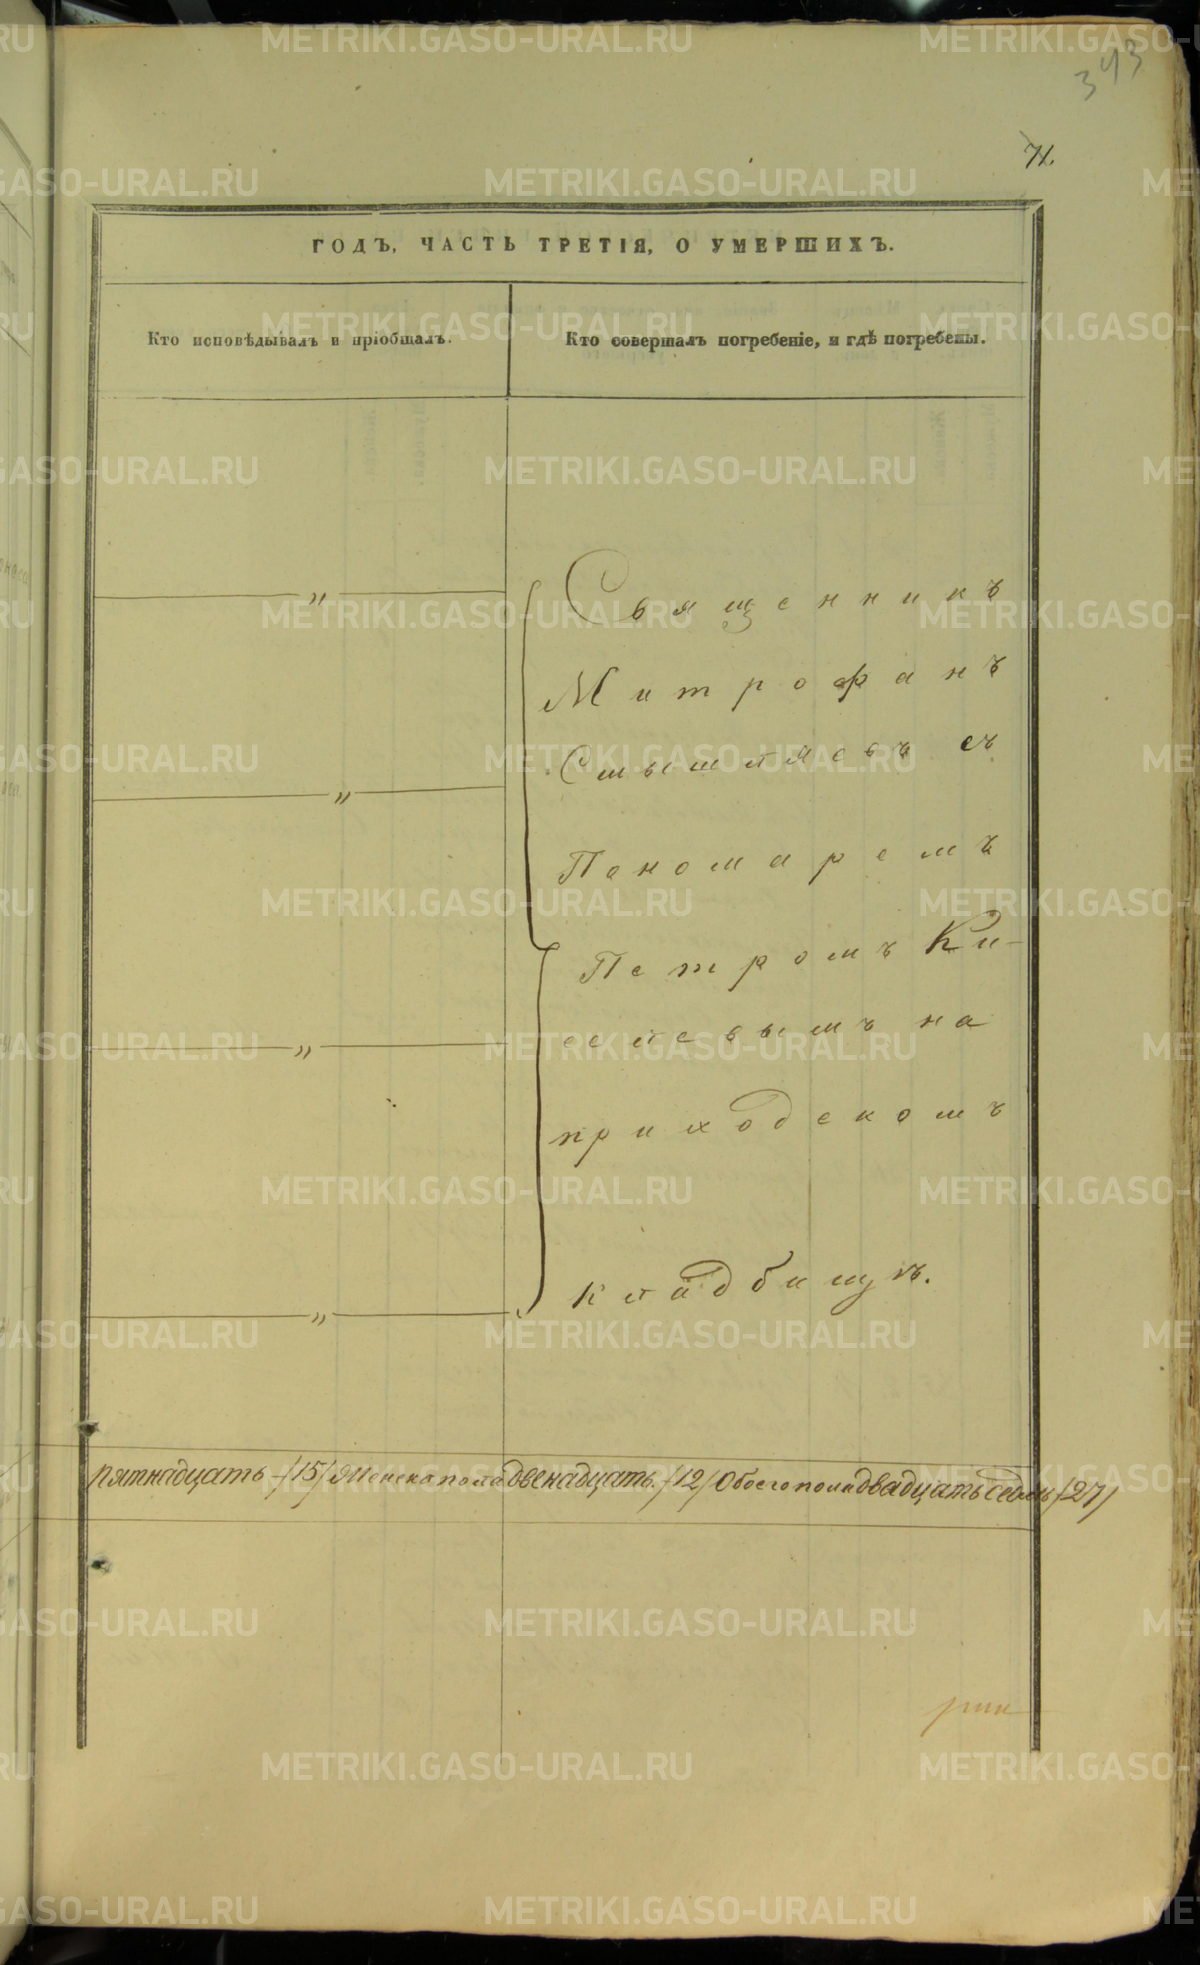 343
71.
ГОДЪ, ЧАСТЬ ТРЕТІЯ, О УМЕРШИХЪ.
Кто исповѣдывалъ и пріобщалъ.
Кто совершалъ погребеніе, и гдѣ погребены.
Священникъ
Митрофанъ
Смышляевъ съ
Пономаремъ
Петромъ Ки-
селевымъ на
приходскомъ
кладбищѣ.
пятнадцать /15/ Женска пола двенадцать. /12/ Обоего пола двадцать седмь /27/
METRIKI.GASO-URAL.RU